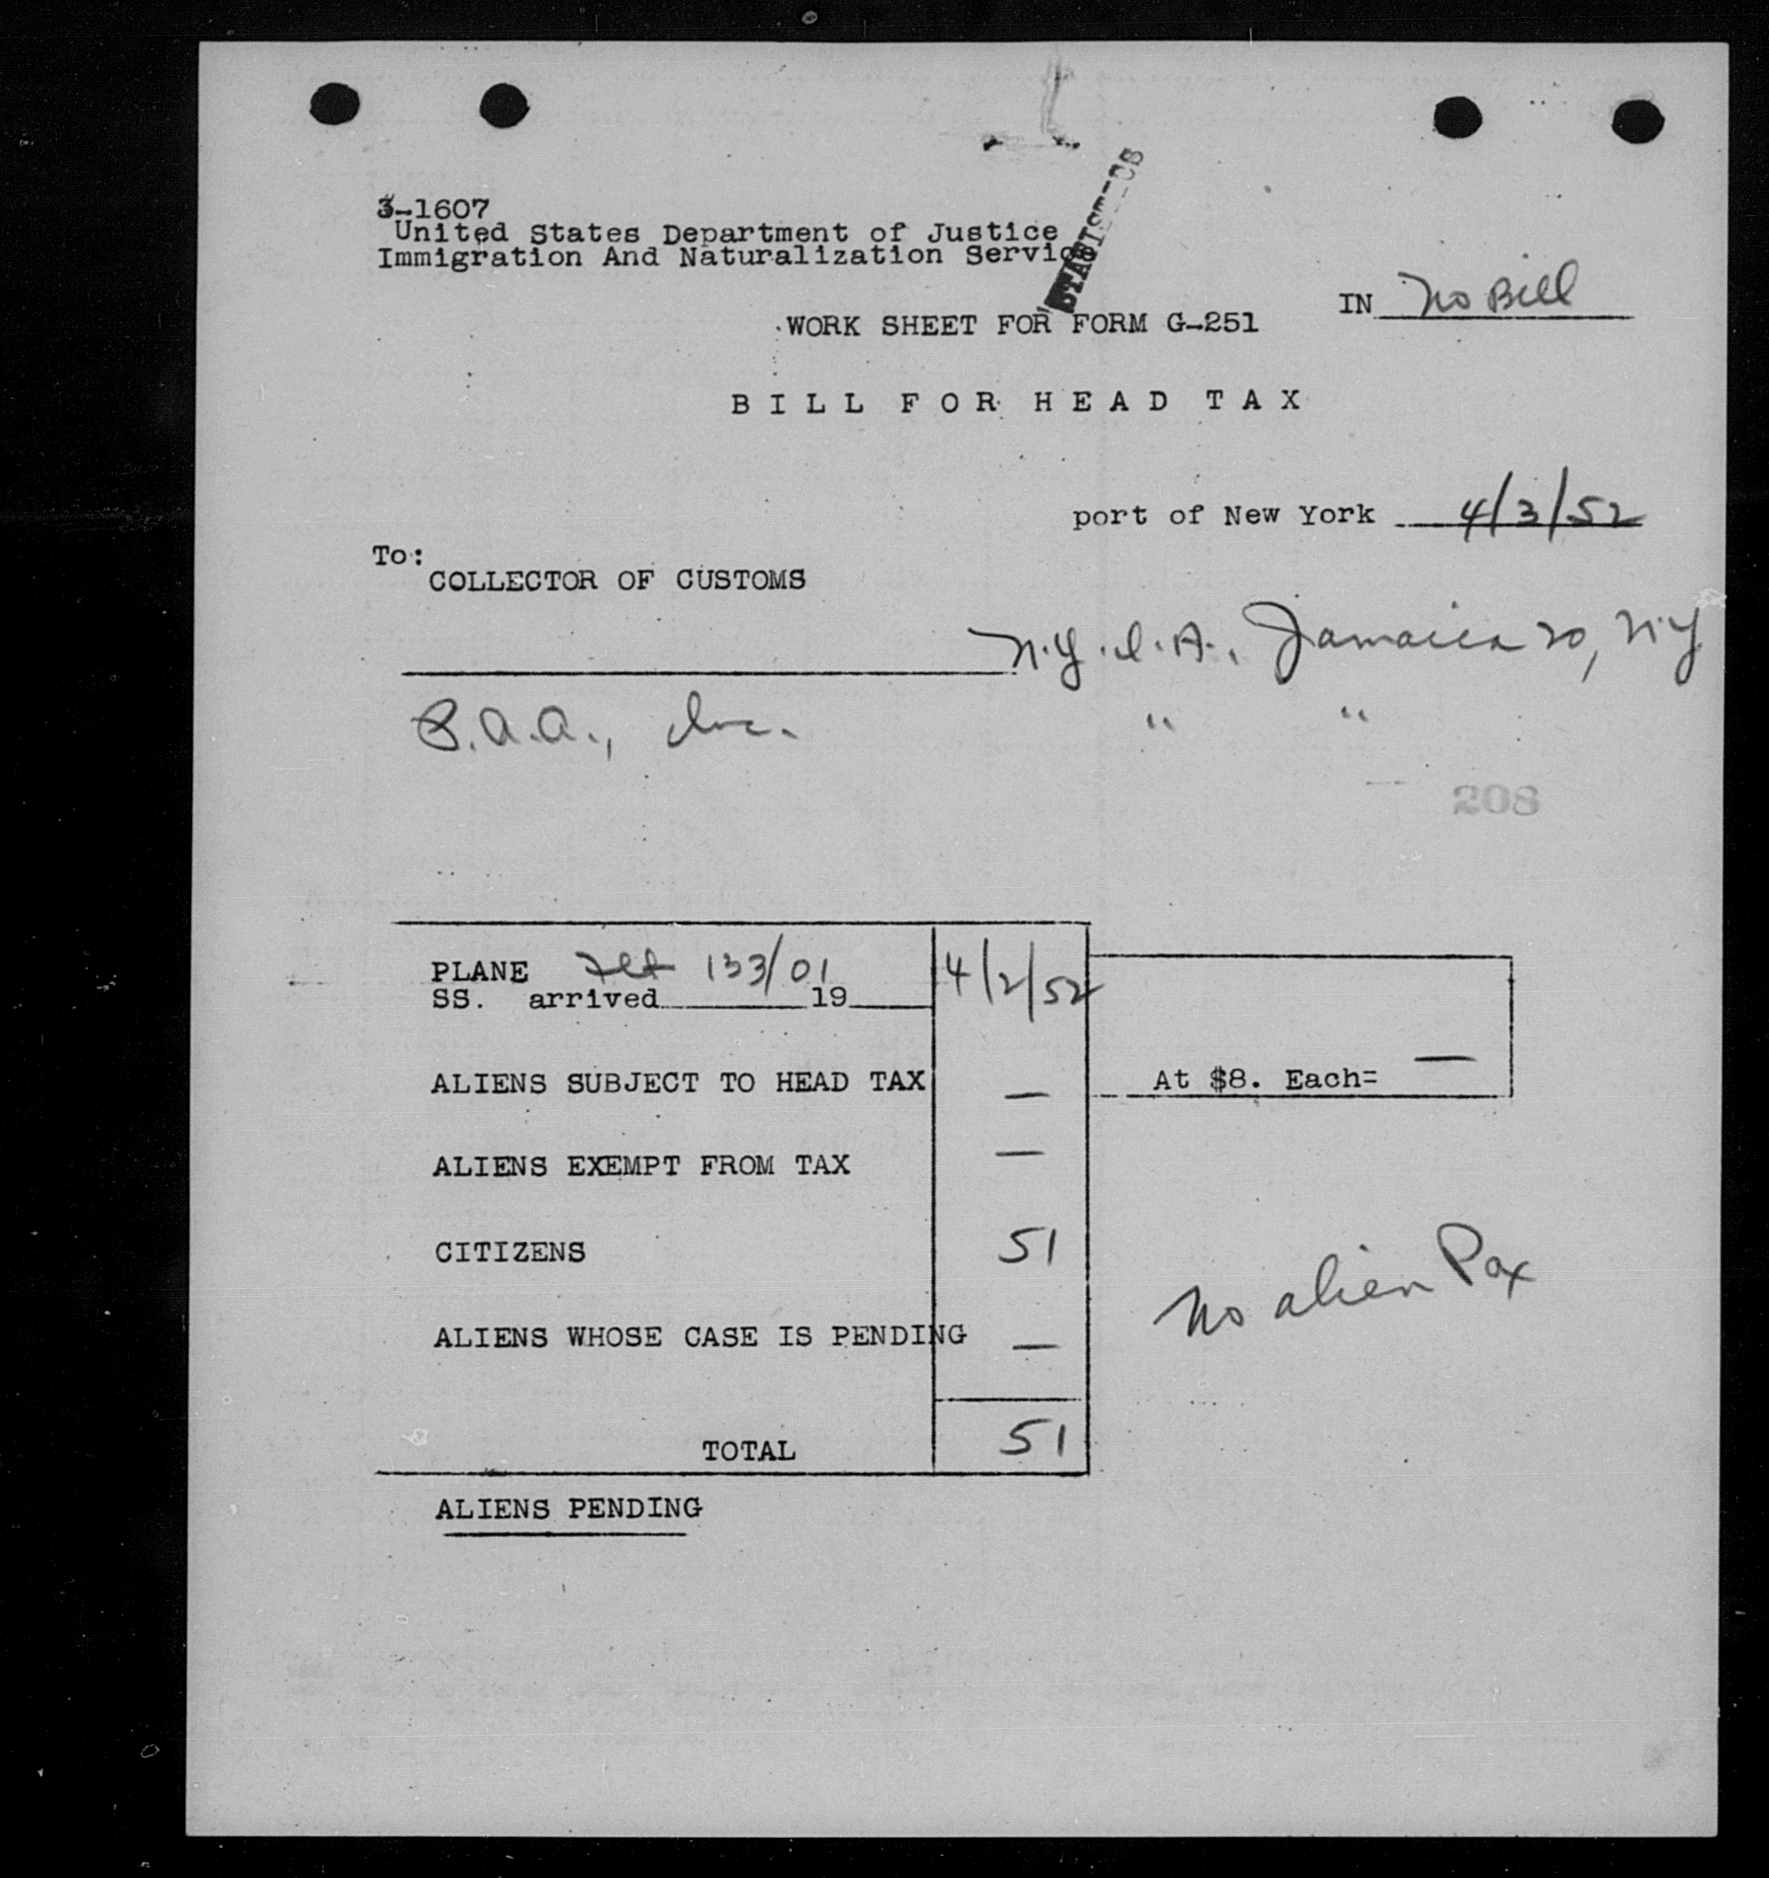 3-1607
United States Department of Justice
Immigration And Naturalization Service
STATISTICS
IN No Bill
WORK SHEET FOR FORM G-251
BILL FOR HEAD TAX
port of New York 4/3/52
To:
COLLECTOR OF CUSTOMS
N.Y.I.A., Jamaica 20, N.Y
P.A.A., Inc. " "
208
PLANE Flt 133/01 4/2/52
SS. arrived 19
ALIENS SUBJECT TO HEAD TAX — At $8. Each= —
ALIENS EXEMPT FROM TAX —
CITIZENS 51
No alien Pax
ALIENS WHOSE CASE IS PENDING —
TOTAL 51
ALIENS PENDING